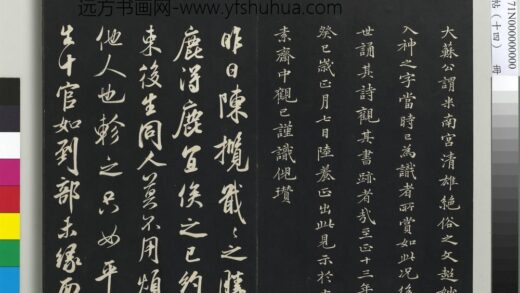 远方书画网 www.yfshuhua.com
71N00000000000
帖(十四) 册
大蘇公謂米南宮清雄絕俗之文超妙
入神之字當時已為識者所賞如此况後
世誦其詩觀其書跡者哉至正十三年
癸巳歲正月七日陸養正出此見示於
素齋中觀已謹識倪瓚
昨日陳攬戢戢之勝
鹿得鹿宜俟之已約
束後生同人莫不用煩
他人也軫之只如平
生十官如到部未緣面